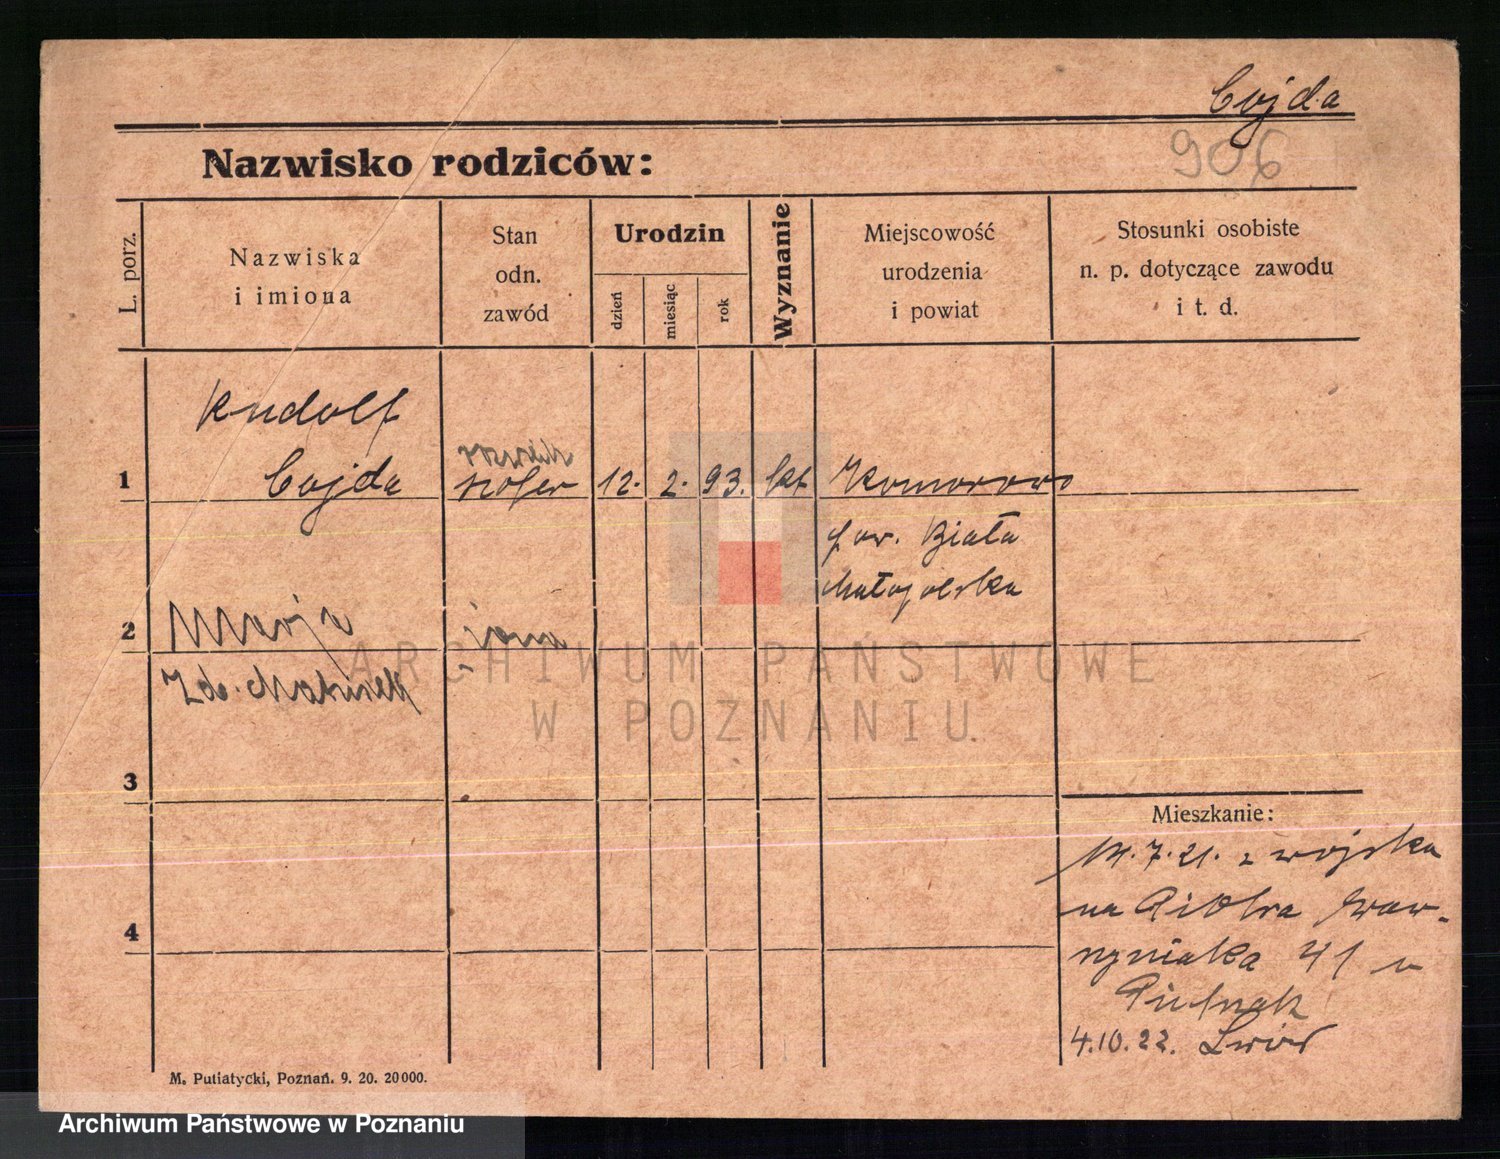 Cojda
906
Nazwisko rodziców:
L. porz.
Nazwiska
i imiona
Stan
odn.
zawód
Urodzin
dzień
miesiąc
rok
Wyznanie
Miejscowość
urodzenia
i powiat
Stosunki osobiste
n. p. dotyczące zawodu
i t. d.
Rudolf
1 Cojda szofer 12. 2. 93. kt Komorowo
pow. Biała
Małopolska
2 Marja żona
3
Mieszkanie:
14.7.21. z wojska
na Piotra Waw-
rzyniaka 41 u
4
4.10.22. Lwów
M. Putiatycki, Poznań. 9. 20. 20000.
ARCHIWUM PAŃSTWOWE
W POZNANIU
Archiwum Państwowe w Poznaniu